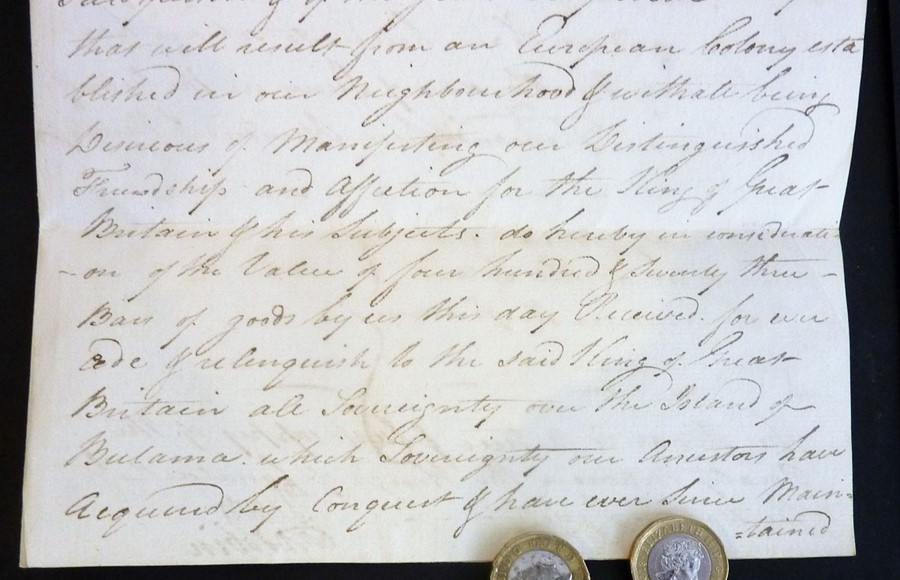 that will result from an European Colony esta
blished in our Neighbourhood & withall being
Desireous of Manifesting our Distinguished
Friendship and Affection for the King of Great
Britain & his Subjects. do hereby in considerati
- on of the Value of four hundred & Twenty three -
Bars of goods by us this day Received. for ever
cede & relinquish to the said King of Great
Britain all Sovereignty over The Island of
Bulama. which Sovereignty our Ancestors have
Acquired by Conquest & have ever Since Main=
=tained